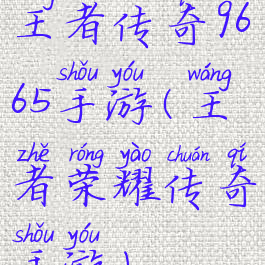 王者传奇96
shǒu yóu wáng
65手游(王
zhě róng yào chuán qí
者荣耀传奇
shǒu yóu
手游)